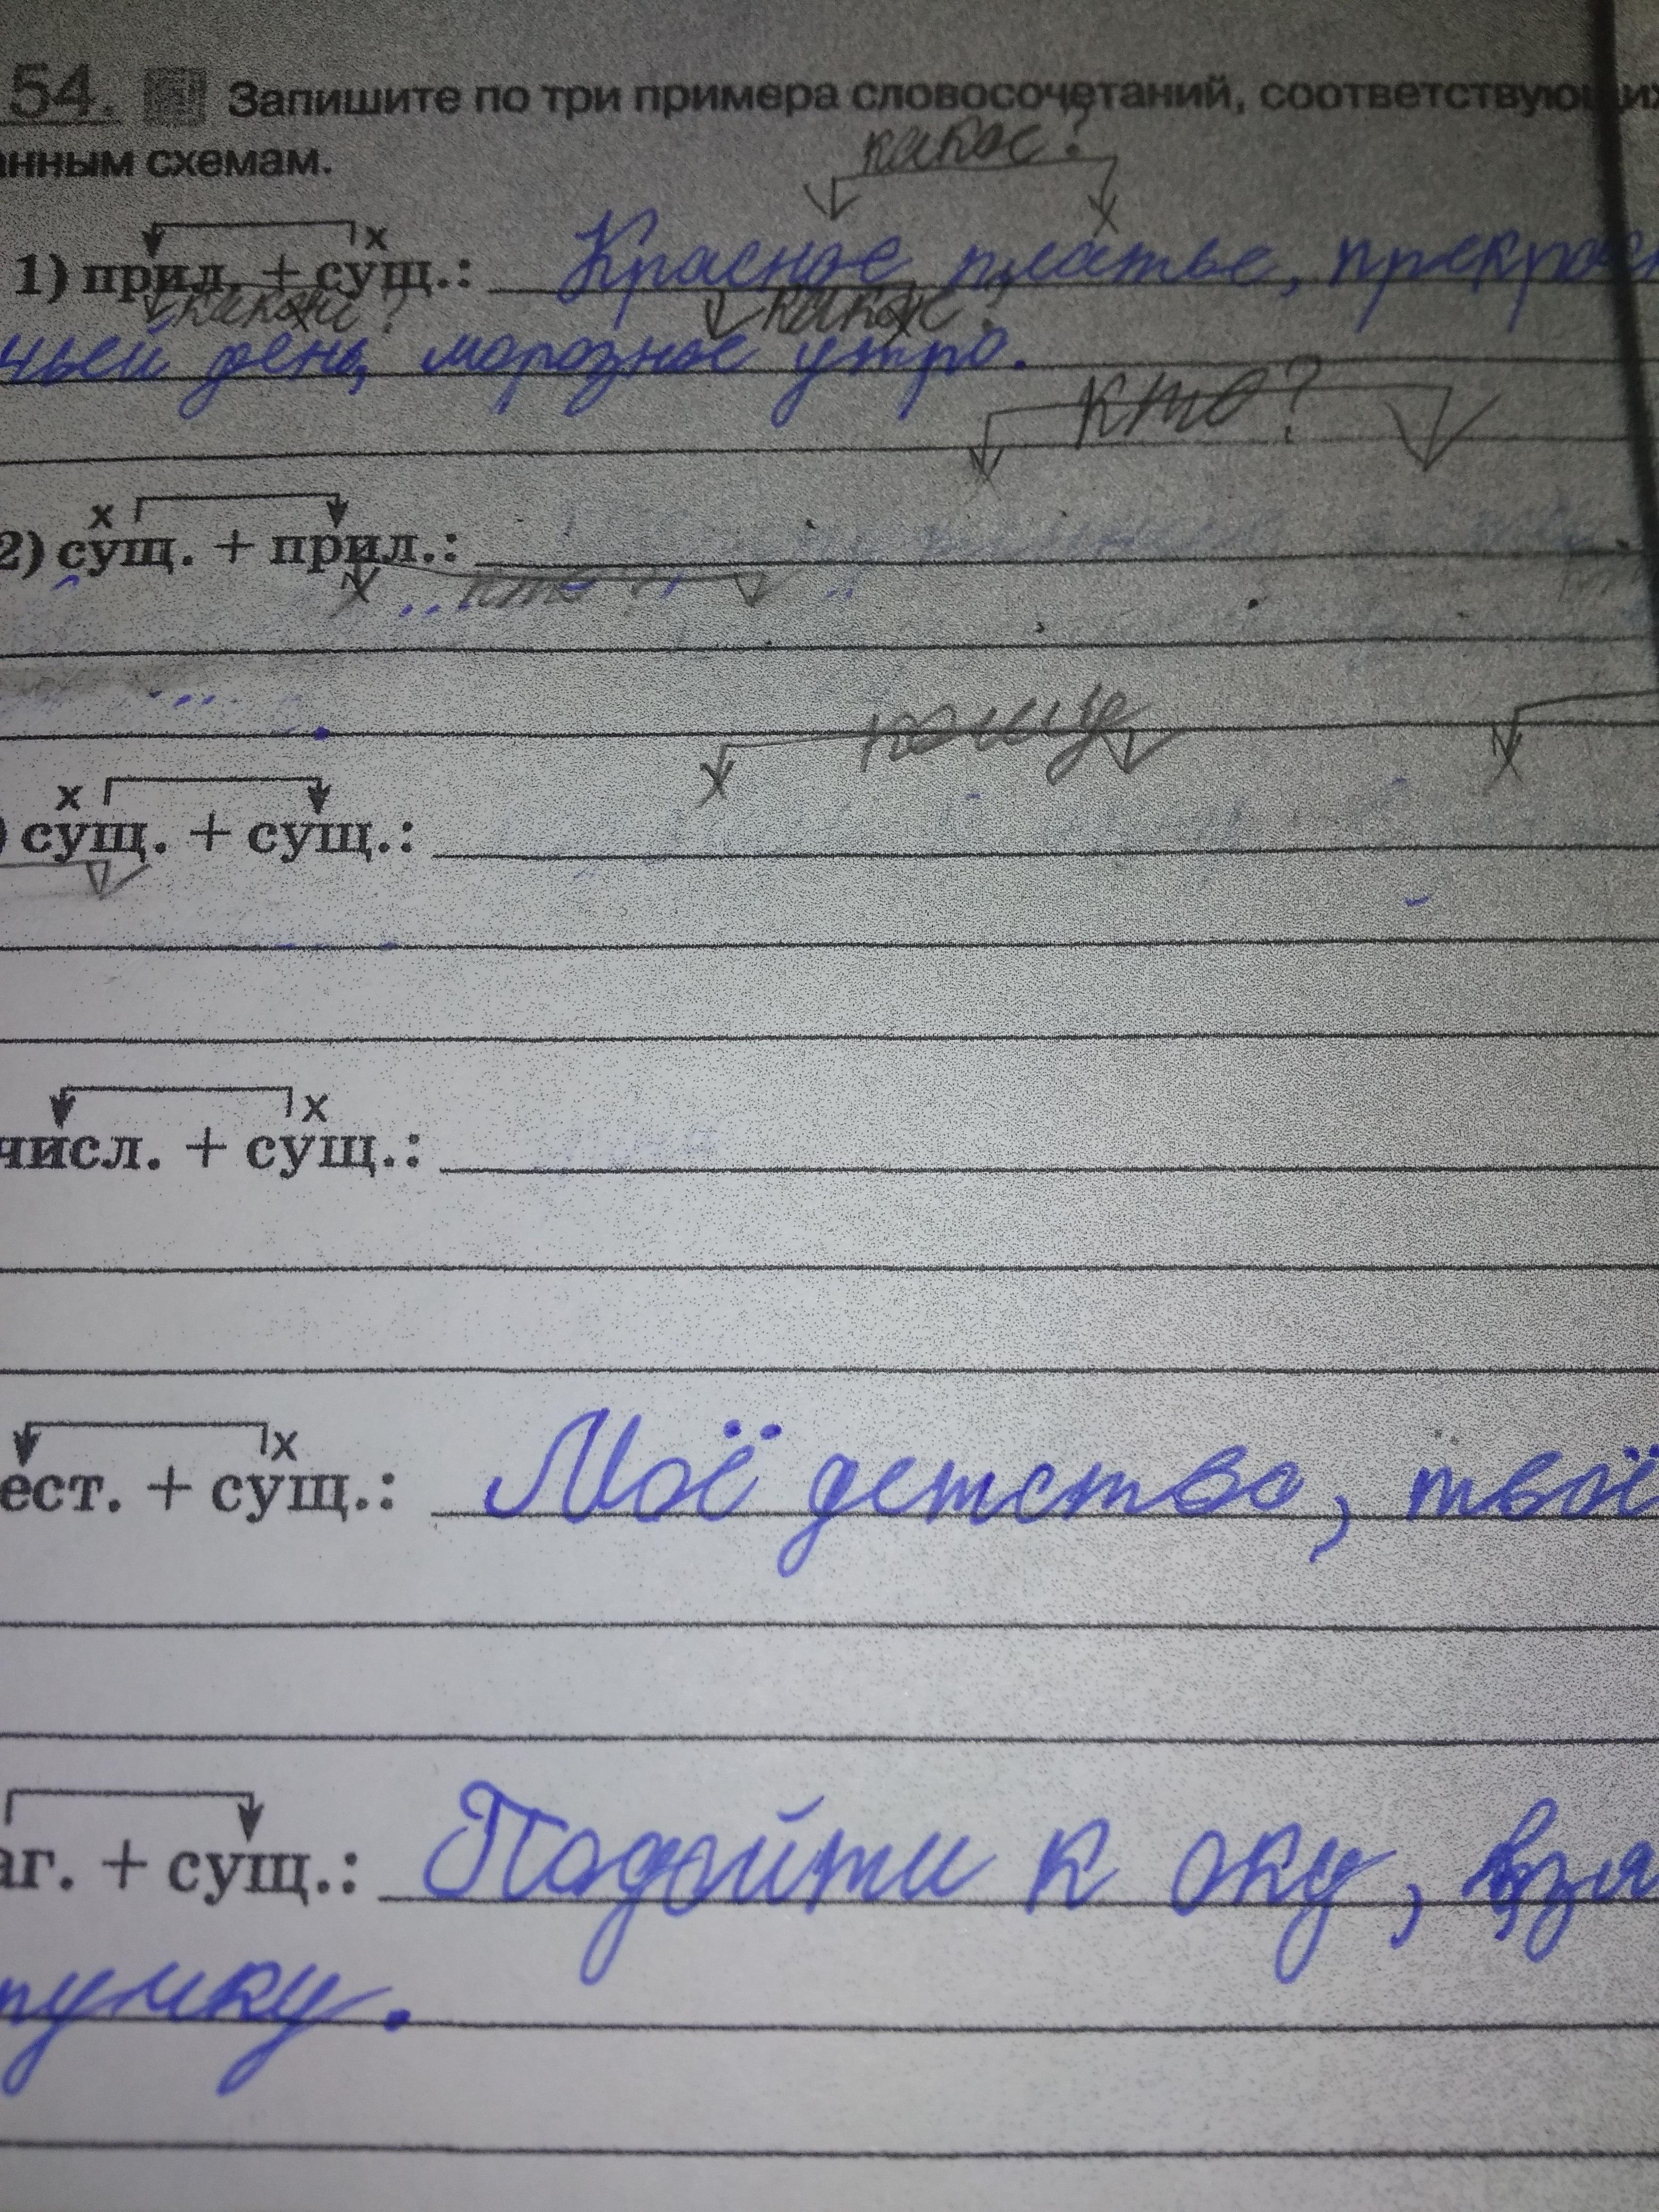 54. Запишите по три примера словосочетаний, соответствующих
анным схемам.
какое?
х
1) прил. + сущ.: Красное платье, прекрасн
какой? какое?
день, морозное утро.
кто?
х
2) сущ. + прил.:
кто?
кому
х
) сущ. + сущ.:
х
числ. + сущ.:
х
ест. + сущ.: Моё детство, твоё
аг. + сущ.: Подойти к оку, взя